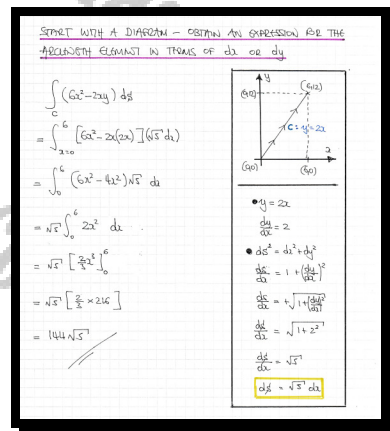 START WITH A DIAGRAM – OBTAIN AN EXPRESSION FOR THE
ARCLENGTH ELEMENT IN TERMS OF dx OR dy
∫_C (6x²-2xy) ds
= ∫_{x=0}^6 [6x²-2x(2x)](√5 dx)
= ∫_0^6 (6x²-4x²)√5 dx
= √5 ∫_0^6 2x² dx
= √5 [⅔x³]_0^6
= √5 [⅔ × 216]
= 144√5
y
(0,12)
(6,12)
C: y=2x
x
(0,0)
(6,0)
• y = 2x
dy/dx = 2
• ds² = dx² + dy²
= 1 + (dy/dx)²
ds/dx = +√(1+(dy/dx)²)
ds/dx = √(1+2²)
ds/dx = √5
ds = √5 dx